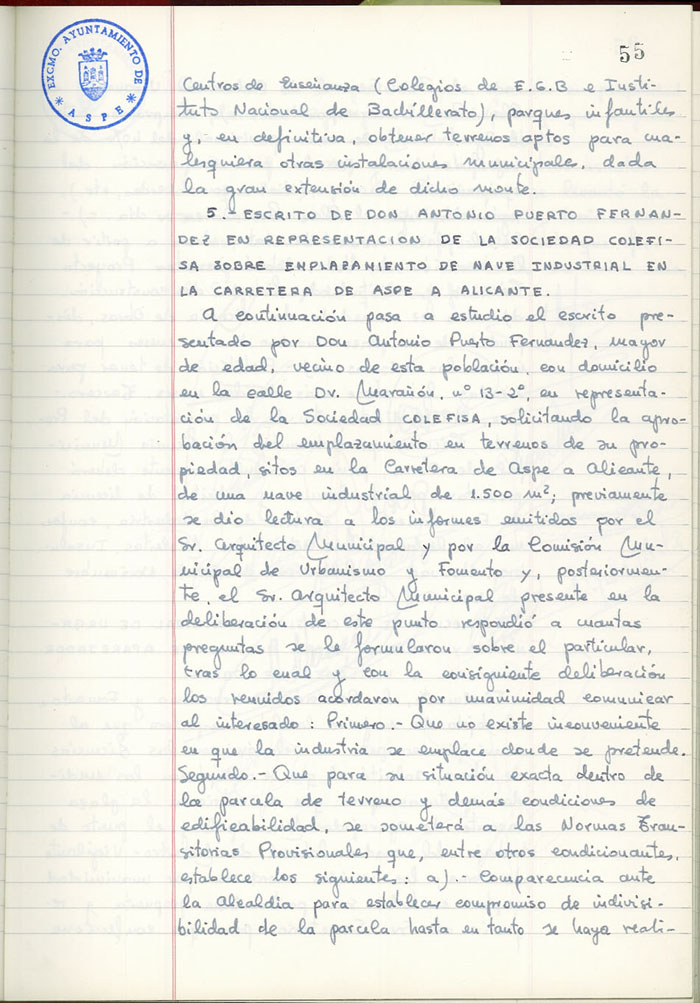 EXCMO. AYUNTAMIENTO DE
* ASPE *
55
Centros de Enseñanza (Colegios de E.G.B e Insti-
tuto Nacional de Bachillerato), parques infantiles
y, en definitiva, obtener terrenos aptos para cua-
lesquiera otras instalaciones municipales, dada
la gran extensión de dicho monte.
5.- ESCRITO DE DON ANTONIO PUERTO FERNAN-
DEZ EN REPRESENTACION DE LA SOCIEDAD COLEFI-
SA SOBRE EMPLAZAMIENTO DE NAVE INDUSTRIAL EN
LA CARRETERA DE ASPE A ALICANTE.
A continuación pasa a estudio el escrito pre-
sentado por Don Antonio Puerto Fernandez, mayor
de edad, vecino de esta población, con domicilio
en la calle Dr. Marañón, nº 13-2º, en representa-
ción de la Sociedad COLEFISA, solicitando la apro-
bación del emplazamiento en terrenos de su pro-
piedad, sitos en la Carretera de Aspe a Alicante,
de una nave industrial de 1.500 m²; previamente
se dio lectura a los informes emitidos por el
Sr. Arquitecto Municipal y por la Comisión Mu-
nicipal de Urbanismo y Fomento y, posteriormen-
te, el Sr. Arquitecto Municipal presente en la
deliberación de este punto respondió a cuantas
preguntas se le formularon sobre el particular,
tras lo cual y con la consiguiente deliberación
los reunidos acordaron por unanimidad comunicar
al interesado: Primero.- Que no existe inconveniente
en que la industria se emplace donde se pretende.
Segundo.- Que para su situación exacta dentro de
la parcela de terreno y demás condiciones de
edificabilidad, se someterá a las Normas Tran-
sitorias Provisionales que, entre otros condicionantes,
establece los siguientes: a).- Comparecencia ante
la Alcaldia para establecer compromiso de indivisi-
bilidad de la parcela hasta en tanto se haya reali-